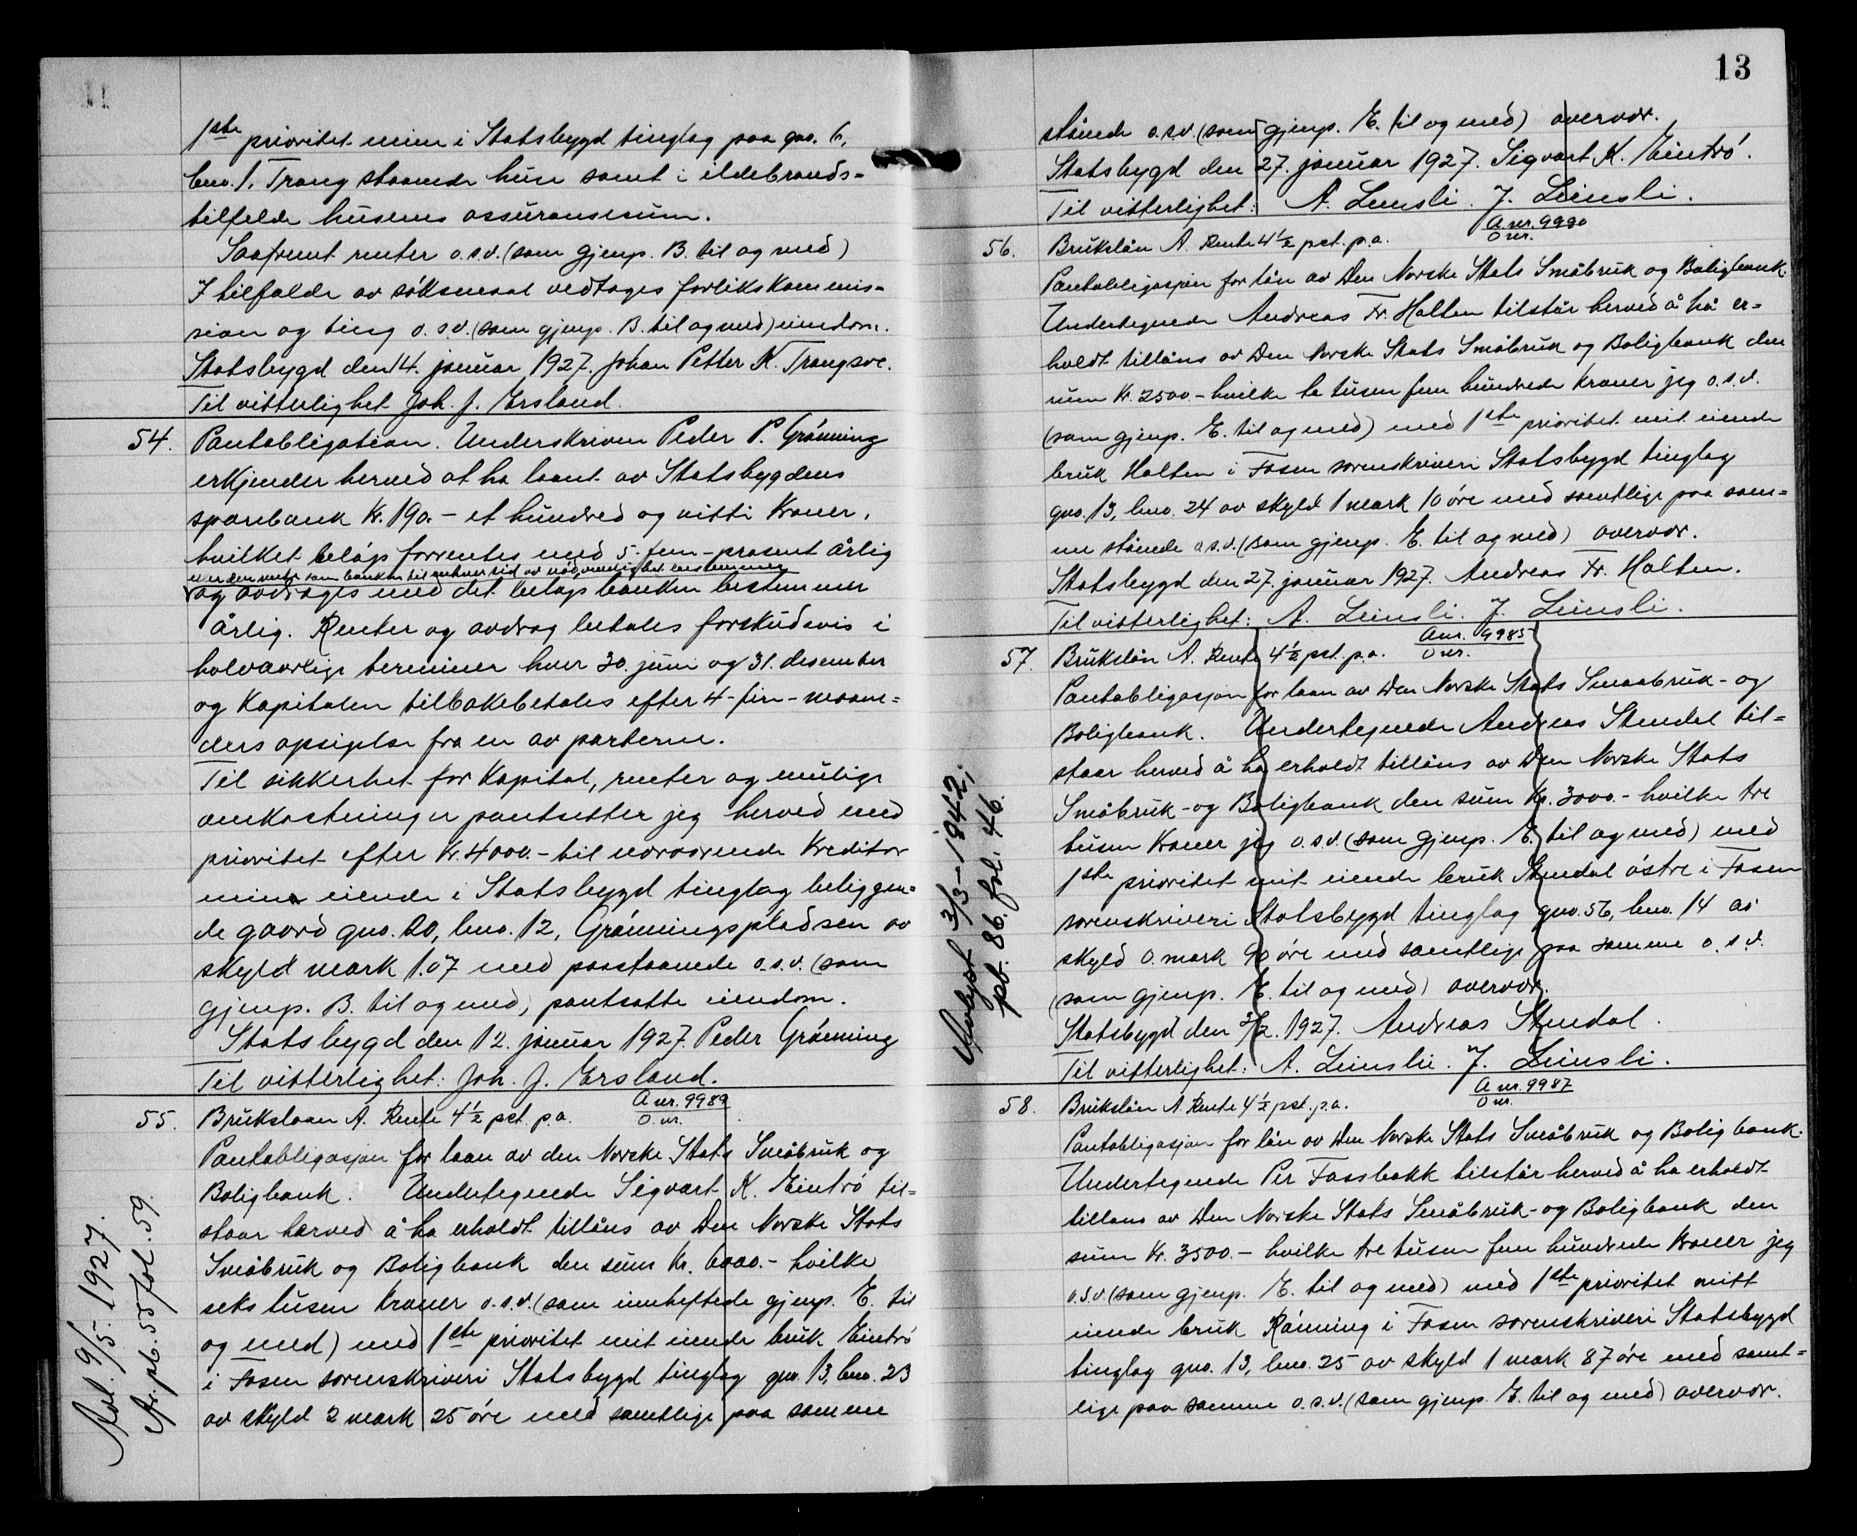 1ste prioritet min i Statsbygd tinglag paa gno. 6,
bno. 1, Trang staaende huse samt i ildebrands-
tilfelde husenes assuransesum.
Saafremt renter o.s.v. (som gjenp. B. til og med)
I tilfelde av søksmaal vedtages forlikskommis-
sion og ting o.s.v. (som gjenp. B. til og med) eiendom.
Statsbygd den 14. januar 1927. Johan Petter K.
Til vitterlighet Joh. J. Ersland.
54. Pantobligation. Underskreven Peder P. Grønning
erkjender herved at ha laant av Statsbygdens
sparebank Kr. 190.- et hundred og nitti Kroner,
hvilket beløp forrentes med 5-fem-prosent årlig
eller den rente som banken til enhver tid av nødvendighet bestemmer
og avdrages med det beløp banken bestemmer
årlig. Renter og avdrag betales forskudsvis i
halvaarlige terminer hver 30. juni og 31. desember
og Kapitalen tilbakebetales efter 4-fire-maane-
ders opsigelse fra en av parterne.
Til sikkerhet for Kapital, renter og mulige
omkostninger pantsetter jeg herved med
prioritet efter Kr. 4000.- til nærværende Kreditor
min eiende i Statsbygd tinglag beliggen-
de gaard gno. 20, bno. 12, Grønningspladsen av
skyld mark 1.07 med paastaaende o.s.v. (som
gjenp. B. til og med) pantsatte eiendom.
Statsbygd den 12. januar 1927. Peder Grønning
Til vitterlighet: Joh. J. Ersland.
A nr. 9989
55. Brukslaan A. Rente 4½ pct. p.a. O nr.
Pantobligasjon for laan av den Norske Stats Småbruk og
Boligbank. Undertegnede Sigvart K. Eintrø til-
staar herved å ha erholdt tillåns av Den Norske Stats
Småbruk og Boligbank den sum Kr. 6000.- hvilke
seks tusen kroner o.s.v. (som innheftede gjenp. E. til
og med) med 1ste prioritet mit eiende bruk Eintrø
i Fosen sorenskriveri Statsbygd tinglag gno. 13, bno. 23
av skyld 2 mark 25 øre med samtlige paa samme
Avl. 9/5. 1927.
Av. pb. 55 fol. 59.
13
stående o.s.v. (som gjenp. E. til og med) overvær.
Statsbygd den 27. januar 1927. Sigvart K. Eintrø.
Til vitterlighet: A. Leinsli. J. Leinsli.
A nr. 9990
56. Brukslån A. Rente 4½ pct. p.a. O nr.
Pantobligasjon for lån av Den Norske Stats Småbruk og Boligbank.
Undertegnede Andreas Fr. Halten tilstår herved å ha er-
holdt tillåns av Den Norske Stats Småbruk og Boligbank den
sum Kr. 2500.- hvilke to tusen fem hundrede kroner jeg o.s.v.
(som gjenp. E. til og med) med 1ste prioritet mit eiende
bruk Halten i Fosen sorenskriveri Statsbygd tinglag
gno. 13, bno. 24 av skyld 1 mark 10 øre med samtlige paa sam-
me stående o.s.v. (som gjenp. E. til og med) overvær.
Statsbygd den 27. januar 1927. Andreas Fr. Halten.
Til vitterlighet: A. Leinsli. J. Leinsli.
A nr. 9985
57. Brukslån A. Rente 4½ pct. p.a. O nr.
Pantobligasjon for laan av Den Norske Stats Smaabruk- og
Boligbank. Undertegnede Andreas Stendal til-
staar herved å ha erholdt tillåns av Den Norske Stats
Småbruk- og Boligbank den sum Kr. 3000.- hvilke tre
tusen Kroner jeg o.s.v. (som gjenp. E. til og med) med
1ste prioritet mit eiende bruk Stendal østre i Fosen
sorenskriveri Statsbygd tinglag gno. 56, bno. 14 av
skyld 0. mark 90 øre med samtlige paa samme o.s.v.
(som gjenp. E. til og med) overvær.
Statsbygd den 2/2. 1927. Andreas Stendal.
Til vitterlighet: A. Leinsli. J. Leinsli.
Avlyst 3/3-1942,
pb. 86. fol. 46.
A nr. 9987
58. Brukslån A. Rente 4½ pct. p.a. O nr.
Pantobligasjon for lån av Den Norske Stats Småbruk og Boligbank.
Undertegnede Per Fossbakk tilstår herved å ha erholdt
tillans av Den Norske Stats Småbruk- og Boligbank den
sum Kr. 3500.- hvilke tre tusen fem hundrede Kroner jeg
o.s.v. (som gjenp. E. til og med) med 1ste prioritet mitt
eiende bruk Rønning i Fosen sorenskriveri Statsbygd
tinglag gno. 13, bno. 25 av skyld 1 mark 87 øre med samt-
lige paa samme o.s.v. (som gjenp. E. til og med) overvær.